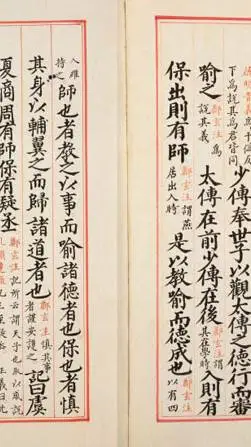 下爲說其爲君皆同少傅奉世子以觀太傅之德行而審
喻之鄭玄注爲說其義太傅在前少傅在後鄭玄注謂其在學時入則有
保出則有師鄭玄注謂燕居出入時是以教喻而德成也以有四
人維持之師也者教之以事而喻諸德者也保也者慎
其身以輔翼之而歸諸道者也鄭玄注慎其事者謹安護之記曰虞
夏商周有師保有疑丞鄭玄注記所云謂天子也取以成說